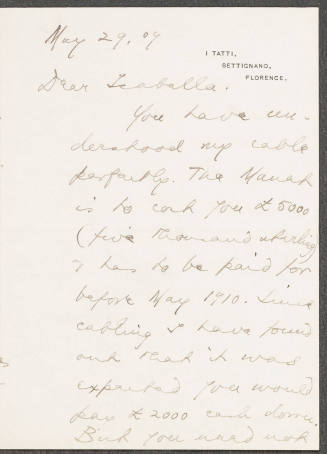 May 29, 09
I TATTI,
SETTIGNANO,
FLORENCE.
Dear Isabella.
You have un-
derstood my cable
perfectly. The Manet
is to cost you £5000
(five thousand sterling)
& has to be paid for
before May 1910. Since
cabling I have found
out that it was
expected you would
pay £2000 cash down.
But you need not